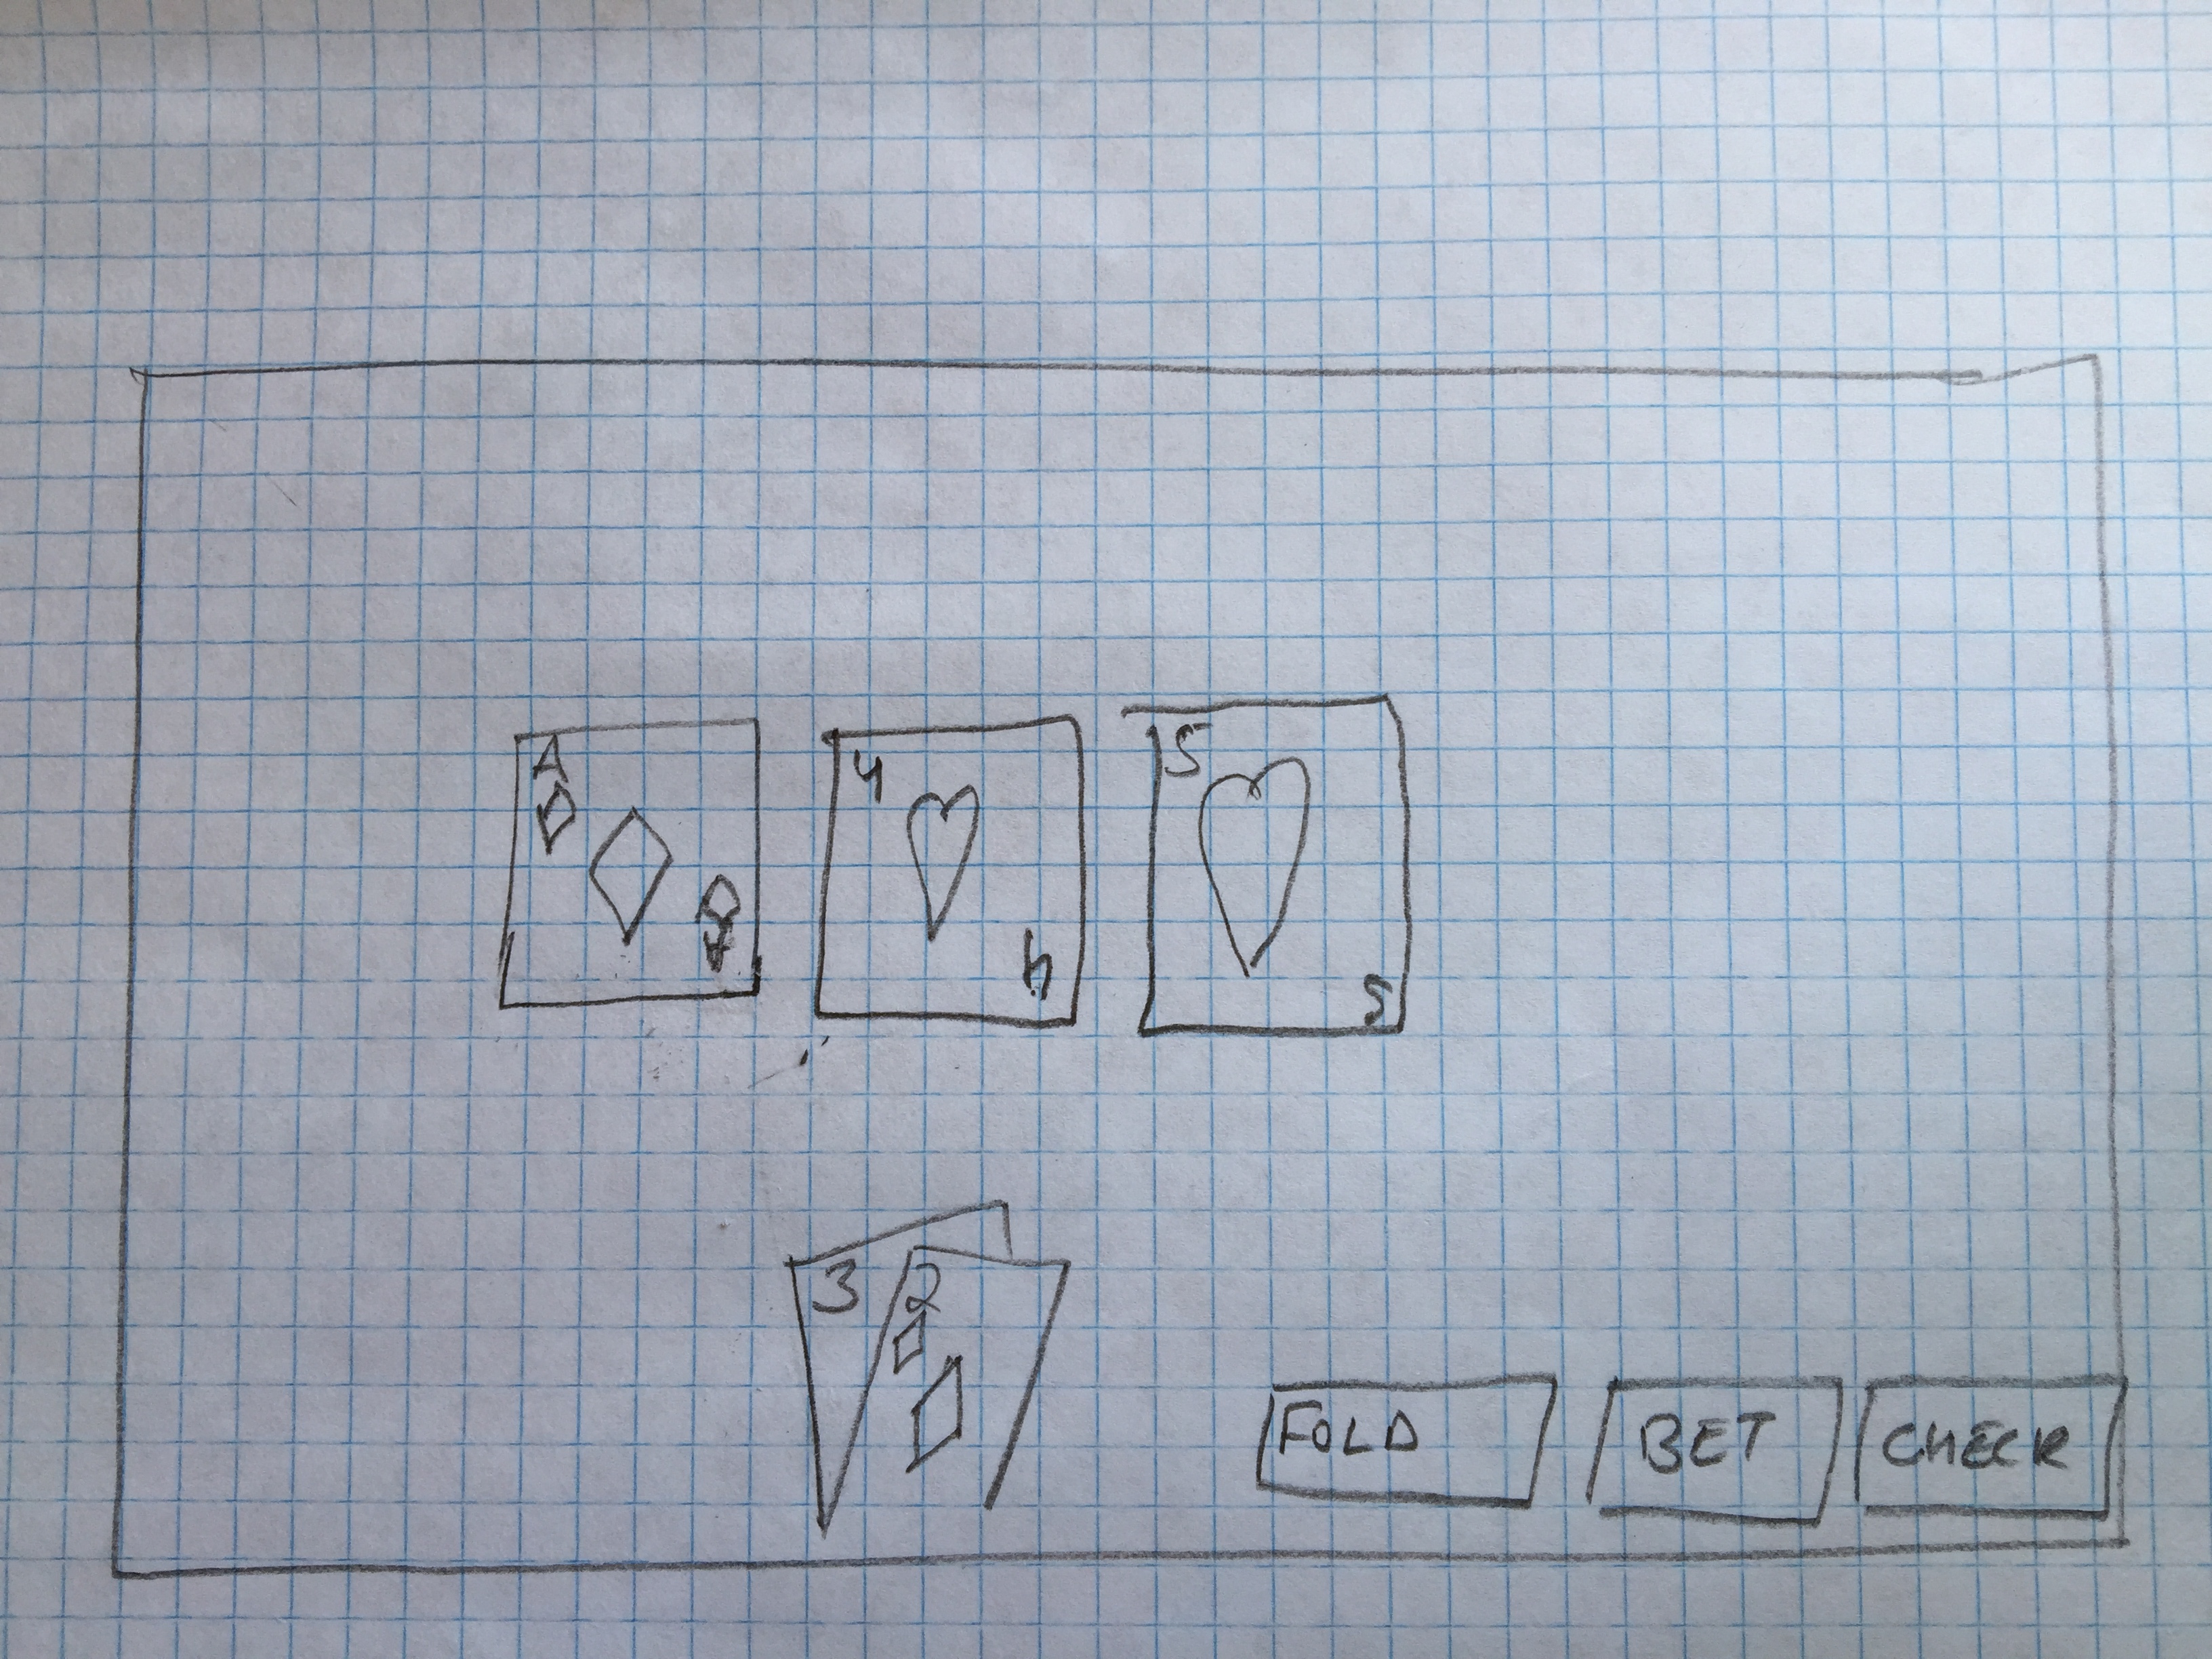 A
A
4
4
5
5
3
2
FOLD
BET
CHECK